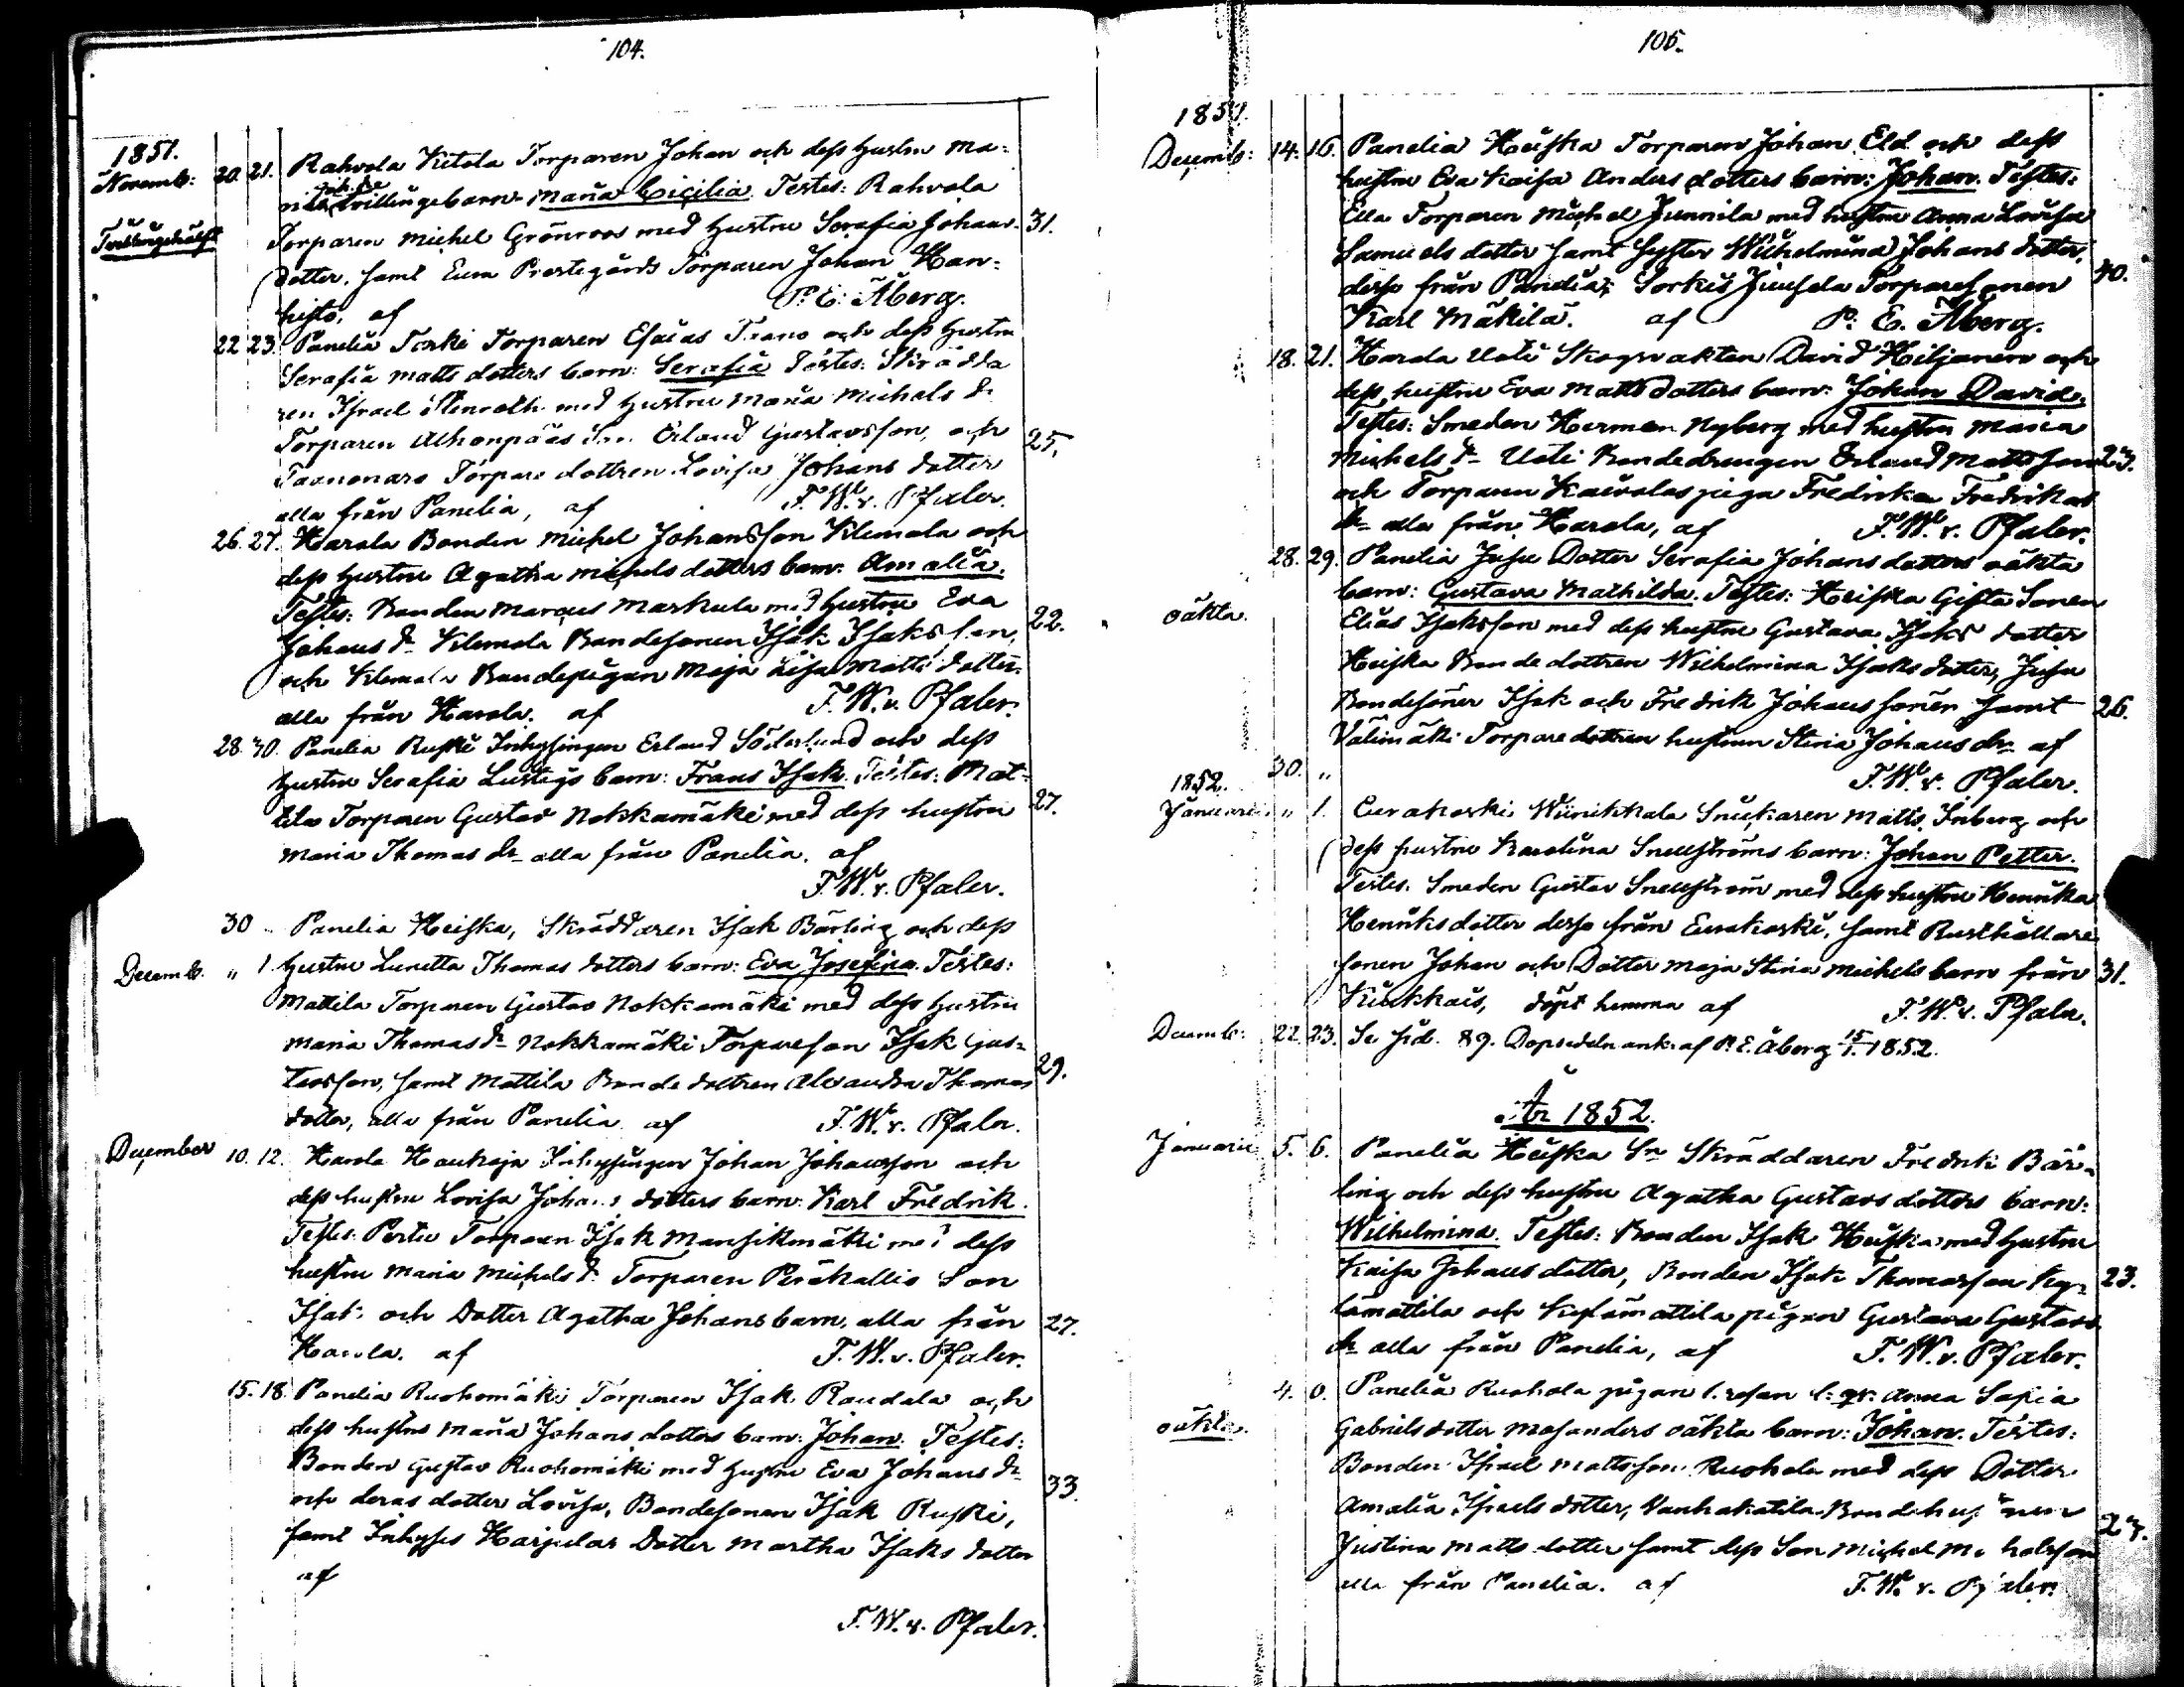 104.
1851.
Novemb: 20. 21. Rahvola Kitola Torparen Johan och dess hustru Ma-
tvillingebarn: Maria Cicilia. Testes: Rahvola
Tvillingehälft
Torparen Michel Grönroos med hustru Serafia Johans- 31.
dotter, samt Eura Prestegårds Torparen Johan Han-
histo, af P. E. Åberg.
22 23. Panelia Torki Torparen Esaias Trano och dess hustru
Serafia Matts dotters barn: Serafia Testes: Skrädda
ren Israel Stenroth med hustru Maria Michels dr
Torparen Alhonpääs Son Erland Gustavsson, och 25.
Torpare dottren Lovisa Johans dotter
alla från Panelia, af F. W. v. Pfaler.
26. 27. Harola Bonden Michel Johansson Klemola och
dess hustru Agatha Michels dotters barn: Amalia.
Testes: Bonden Marcus Markula med hustru Eva 22.
Johans dr Klemola Bondesonen Isak Isaksson,
och Klemola Bondepigan Maja Lisa Matts dotter
alla från Harola. af F. W. v. Pfaler.
28. 30. Panelia Ruski Inhysingen Erland Söderlund och dess
hustru Serafia Lustigs barn: Frans Isak. Testes: Mat-
tila Torparen Gustav Nokkamäki med dess hustru 27.
Maria Thomas dr alla från Panelia. af
F. W. v. Pfaler.
30 Panelia Heiska, Skräddaren Isak Bärling och dess
Decemb. " 1. hustru Lunetta Thomas dotters barn: Eva Josefina. Testes:
Mattila Torparen Gustav Nokkamäki med dess hustru
Maria Thomas dr Nokkamäki Torpareson Isak Gus-
tavsson, samt Mattila Bonde dottren Alexandra Thomas 29.
dotter, alla från Panelia af F. W. v. Pfaler.
December 10. 12. Harola Haukoja Inhysingen Johan Johansson och
dess hustru Lovisa Johans dotters barn: Karl Fredrik.
Testes: Perttu Torparen Isak Mansikmäki med dess
hustru Maria Michels dr Torparen Peräkallio Son
Isak och Dotter Agatha Johans barn, alla från 27.
Harola. af F. W. v. Pfaler.
15. 18. Panelia Ruohomäki Torparen Isak Raudala och
dess hustrus Maria Johans dotters barn: Johan. Testes:
Bonden Gustav Ruohomäki med hustru Eva Johans dr 33.
och deras dotter Lovisa, Bondesonen Isak Ruski,
samt Inhyses Harjulas Dotter Martha Isaks dotter
af
F. W. v. Pfaler.
105.
1851.
Decemb: 14. 16. Panelia Heiska Torparen Johan Eld och dess
hustru Eva Kaisa Anders dotters barn: Johan. Testes:
Ella Torparen Michel Junnila med hustru Anna Lovisa
Samuels dotter samt Syster Wilhelmina Johans dotter,
desse från Panelia; Sorkis Juusela Torparesonen 40.
Karl Mäkilä. af P. E. Åberg.
18. 21. Harola Uoti Skogsvakten David Hiljanen och
dess hustru Eva Matts dotters barn: Johan David.
Testes: Smeden Herman Nyberg med hustru Maria
Michels dr Uoti Bondedrengen Erland Mattsson 23.
och Torparen Kaivolas piga Fredrika Fredriks
dr alla från Harola, af F. W. v. Pfaler.
28. 29. Panelia Jusu Dotter Serafia Johans dotters oäkta
barn: Gustava Mathilda. Testes: Heiska Gifta Sonen
oäkta. Elias Isaksson med dess hustru Gustava Isaks dotter
Heiska Bonde dottren Wilhelmina Isaks dotter, Jusu
Bondesöner Isak och Fredrik Johans söner samt 26.
Välimäki Torpare hustrun Stina Johans dr af
30. " F. W. v. Pfaler.
1852.
Januari " 1. Eurakoski Wiinikkala Snickaren Matts Inberg och
dess hustru Karolina Snellströms barn: Johan Petter.
Testes. Smeden Gustav Snellström med dess hustru Henrika
Henriks dotter desse från Eurakoski, samt Rusthållare
sonen Johan och Dotter Maja Stina Michels barn från 31.
Kiukkais, döpt hemma af F. W. v. Pfaler.
Decemb: 22. 23. Se sid. 89. Dopsedeln ank. af P. E. Åberg 15/1. 1852.
År 1852.
Januarii 5. 6. Panelia Heiska Sn Skräddaren Fredrik Bär-
ling och dess hustru Agatha Gustavs dotters barn:
Wilhelmina. Testes: Bonden Isak Heiska med hustru
Kaisa Johans dotter, Bonden Isak Thomasson Ky- 23.
lämattila och Kylämattila pigan Gustava Gustavs
dr alla från Panelia, af F. W. v. Pfaler.
4. 6. Panelia Ruohola pigan Anna Sofia
oäkta. Gabriels dotter Mosanders oäkta barn: Johan. Testes:
Bonden Israel Mattsson Ruohola med dess Dotter
Amalia Israels dotter, Vanhakatila Bondehustrun
Justina Matts dotter samt dess Son Michel Michelsson 27.
alla från Panelia. af F. W. v. Pfaler.